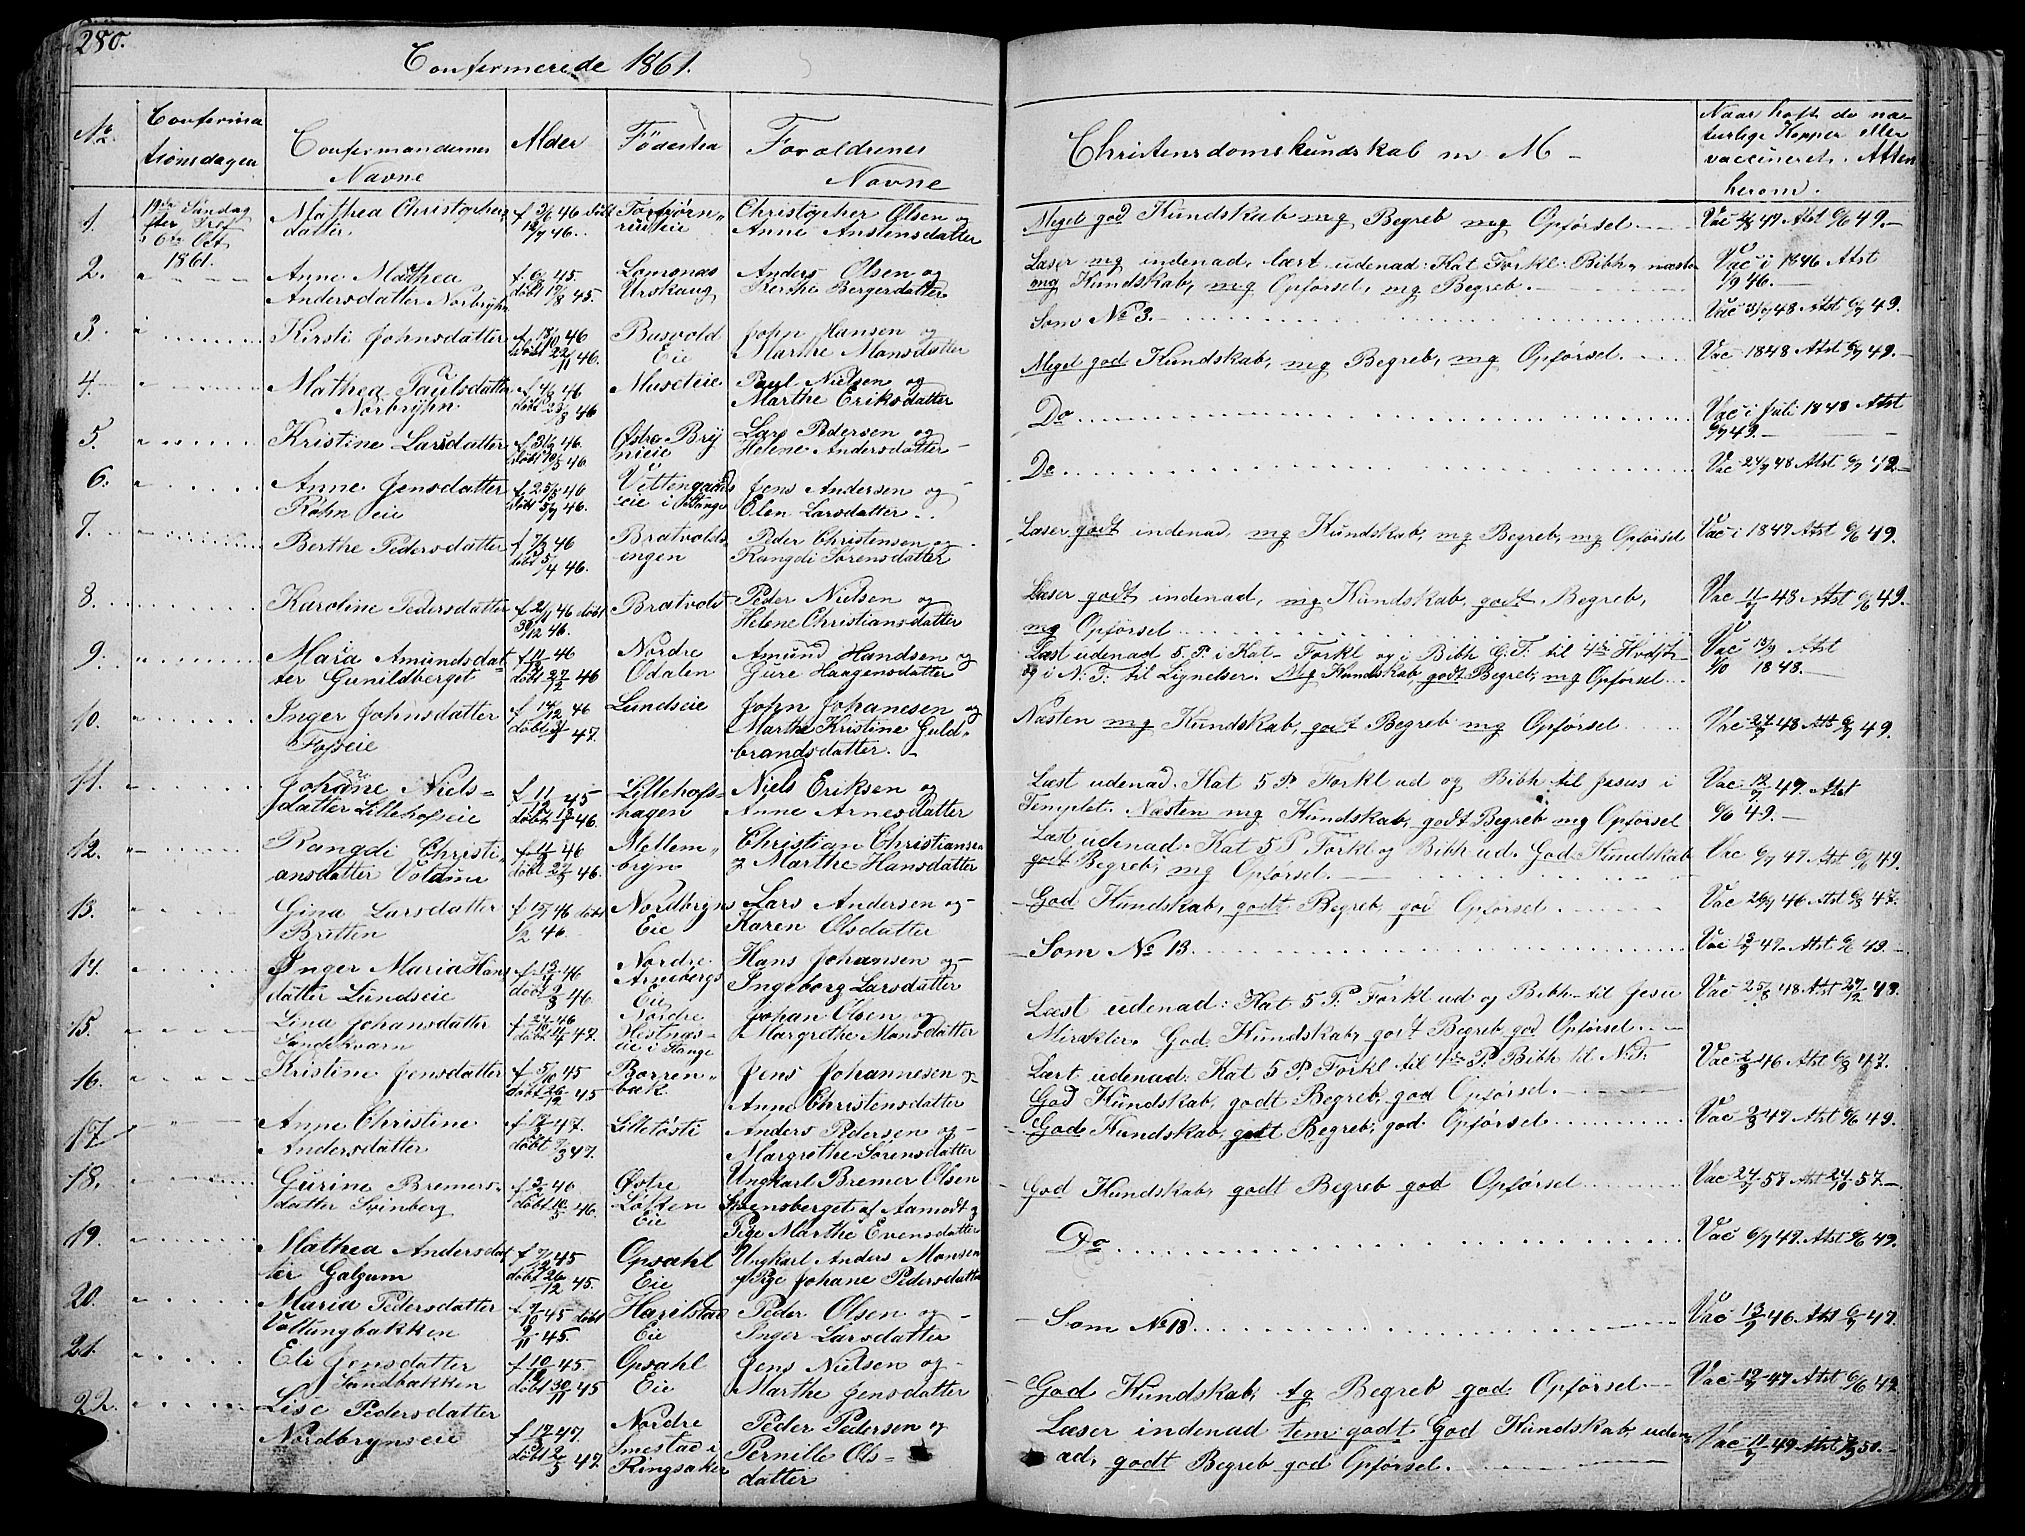 280.
Confirmerede 1861.
No
Confirma
tionsdagen
Confirmandernes
Navne
Alder
Födested
Forældrenes
Navne
Christendomskundskab m M -
Naar haft de na-
turlige Kopper eller
vaccineret. Attest
herom.
1.
19de Søndag
efter Tref
6te Oct
1861.
Mathea Christophers
datter
46
46.
Torbjørn-
rudeie
Christopher Olsen og
Anne Anstensdatter
Meget god Kundskab mg Begreb mg Opførsel
Vac 47 Atst 6/6 49.
2.
Anne Mathea
Andersdatter Norbryhn
f. 6/8 45
döbt 17/8 45.
Lomsnæs
Urskaug
Anders Olsen og
Kerthe Bergersdatter
Læser mg indenad, lært udenad: Kat Forkl. Bibh, næsten
mg Kundskab, mg Opførsel, mg Begreb.
Vac i 1846 Atst
1/9 46.
3.
Kirsti Johnsdatter
f. 18/10 46
döbt 22/11 46.
Busvold
Eie
John Hansen og
Marthe Monsdatter
Som No 3.
Vac 31/7 48 Atst 6/7 49.
4.
Mathea Paulsdatter
Norbryhn
f. 4/8 46
döbt 23/8 46
Museteie
Paul Nielsen og
Marthe Eriksdatter
Meget god Kundskab, mg Begreb, mg Opførsel
Vac 1848 Atst 6/7 49.
5.
Kristine Larsdatter
46.
46.
Østre Bry
nieie
Lars Pedersen og
Helene Andersdatter
Do
Vac i Juli 1848 Atst
6/7 49.
6.
Anne Jensdatter
Røhn eie
f. 25/5 46
döbt 5/7 46.
Vettengaards
eie i Stange
Jens Andersen og
Olen Larsdatter
Do
Vac 24/7 48 Atst 6/7 49
7.
Berthe Pedersdatter
f. 7/3 46
döbt 5/4 46.
Bratvolds
engen
Peder Christensen og
Rangdi Sörensdatter
Læser godt indenad, mg Kundskab, mg Begreb, mg Opförsel
Vac i 1847 Atst 6/6 49.
8.
Karoline Pedersdatter
f. 2/11 46 döbt
30/12 46.
Bratvold
Peder Nielsen og
Helene Christiansdatter
Læser godt indenad, mg Kundskab, godt Begreb,
mg Opførsel
Vac 11/7 48 Atst 6/6 49.
9.
Maria Amundsdat-
ter Gunildberget
46
döbt 27/2 46
Nordre
Odalen
Amund Handsen og
Gure Haagensdatter
Læst udenad 5 P. i Kat- Forkl og i Bibh G.T. til 4de Hvdst-
og i N. T. til Lignelser. Mg Kundskab, godt Begreb, mg Opförsel
Vac 13/9 Atst
1/10 1848.
10.
Inger Johnsdatter
Fosseie
f. 14/12 46
47.
Lundseie
John Johanesen og
Marthe Kristine Guld-
brandsdatter.
Næsten mg Kundskab, godt Begreb mg Opførsel
Vac 27/7 48 Att 6/7 49.
11.
Johane Niels-
datter Lillehofseie
f 11/12 45
46.
Lillehofs-
hagen
Niels Eriksen og
Anne Arnesdatter
Læst udenad. Kat 5 P. Forkl ud og Bibh til Jesus i
Templet. Næsten mg Kundskab, godt Begreb mg Opførsel
Vac 12/7 47. Atst
6/6 49.
12.
Rangdi Christi
ansdatter Volden
46
46.
Mellem-
bryn
Christian Christiansen
og Marthe Hansdatter
Læst udenad. Kat 5 P Forkl og Bibh ud. God Kundskab
godt Begreb, mg Opførsel.
Vac 6/7 47 Atst 6/6 49
13.
Gina Larsdatter
Britten
46 döbt
1/2 46
Nordbryns
Eie
Lars Andersen og
Karen Olsdatter
God Kundskab, godt Begreb, god Opførsel
Vac 26/7 46 Atst 6/8 47.
14.
Inger Maria Hans
datter Lundseie
46
46
Nordre
Arnebergs
Eie
Hans Johansen og
Ingeborg Larsdatter
Som No 13.
Vac 13/7 47 Atst 49.
15.
Lina Johansdatter
Sandekvarn
46
47.
Nordre
Hestnæs-
eie i Stange
Johan Olsen og
Margrethe Monsdatter
Læst udenad: Kat 5 P. Forkl ud og Bibh til Jesu
Mirakler. God Kundskab, godt Begreb god Opførsel
Vac 25/8 48 Atst 29/12 48.
16.
Kristine Jensdatter
f. 5/10 45
45
Borren-
bak
Jens Johannesen og
Anne Christensdatter
Lært udenad: Kat 5 P. Forkl til 4de P. Bibh til N.T.
God Kundskab, godt Begreb, god Opførsel
Vac 46 Atst 6/8 47.
17
Anne Christine
Andersdatter
47.
döbt 7/3 47.
Lilletösti
Anders Pedersen og
Margrethe Sörensdatter
God Kundskab, godt Begreb, god Opførsel
Vac 47 Atst 6/6 49.
18.
Gurine Bremers-
datter Svinberg
46
46.
Østre
Löften
Eie
Ungkarl Bremer Olsen
Stensberget af Aamodt og
Pige Marthe Evensdatter
God Kundskab, godt Begreb god Opførsel
Vac 24/7 57 Atst 24/10 57.
19.
Mathea Andersdat
ter Galgum
45
döbt 26/12 45.
Opsahl
Eie
Ungkarl Anders Monsen
Pige Johane Pedersdatter
Do
Vac 6/7 47. Atst 6/6 49.
20.
Maria Pedersdatter
Voltungbakken
f 7/10 45 döbt
9/11 45.
Harilstad
Eie
Peder Olsen og
Inger Larsdatter
Som No 18
Vac 13/9 46 Atst 6/7 47.
21.
Eli Jensdatter
Sandbakken
f 10/10 45.
döbt 30/11 45
Opsahl
Eie
Jens Nielsen og
Marthe Jensdatter
God Kundskab, tg Begreb god Opførsel.
Vac 12/7 47 Atst 6/6 49
22.
Lise Pedersdatter
Nordbrynseie
47
47
Nordre
Smestad i
Ringsaker
Peder Pedersen og
Pernille Ols-
datter
Læser indenad tem godt. God Kundskab, uden-
ad, godt Begreb god Opførsel.
Vac 11/7 49 Atst 50.